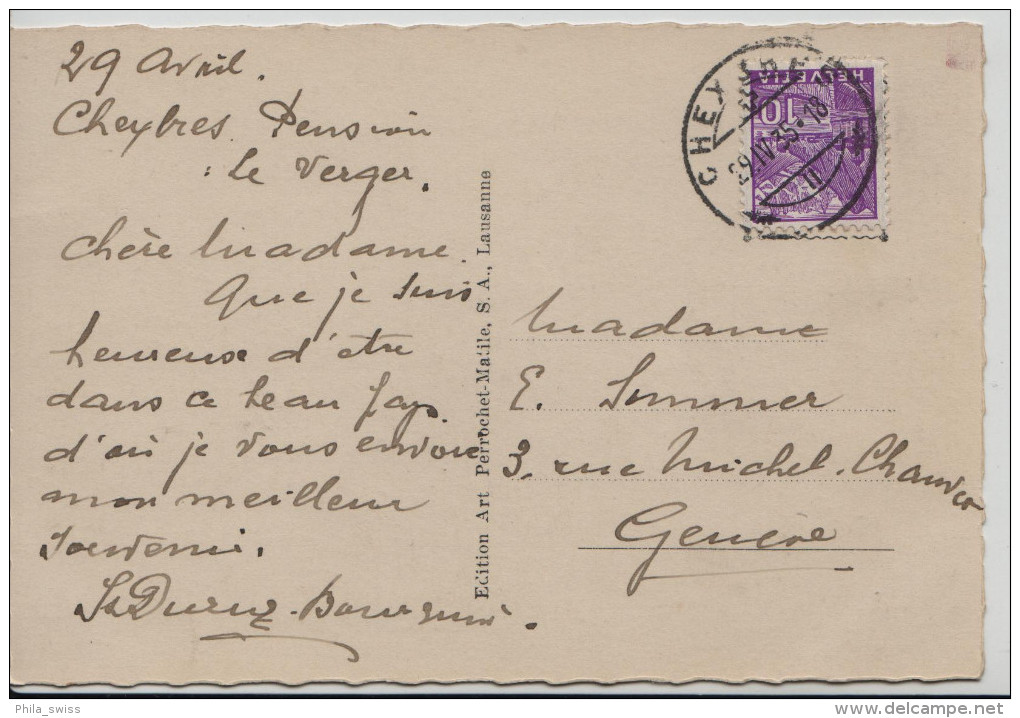 29 Avril.
Cheybres Pension
: le Verger.
Chère Madame.
Que je suis
heureuse d'être
dans ce beau pays
d'où je vous envoie
mon meilleur
souvenir.
Edition Art Perrochet-Matile, S. A., Lausanne
HELVETIA
10
CHEXBRES
29.IV.35.18
II
Madame
E. Sommer
3. rue Michel. Chauvet
Genève
Phila_swiss
delcampe.net